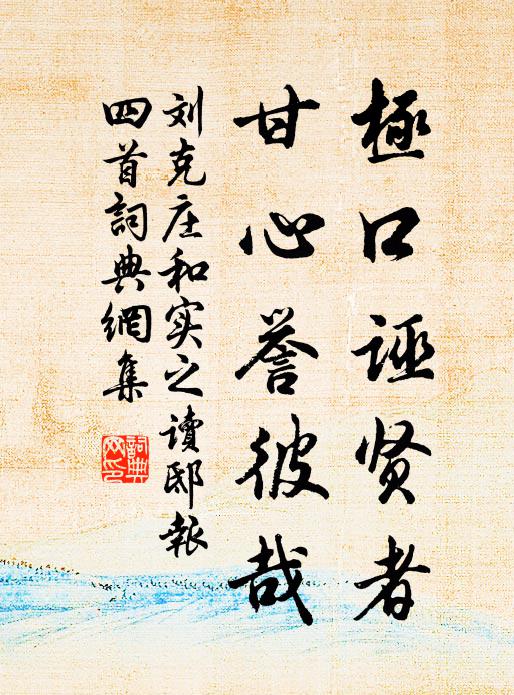 極口誣贤者
甘心誉彼哉
刘克庄和实之读邸報
四首詞典網集
詞典網印